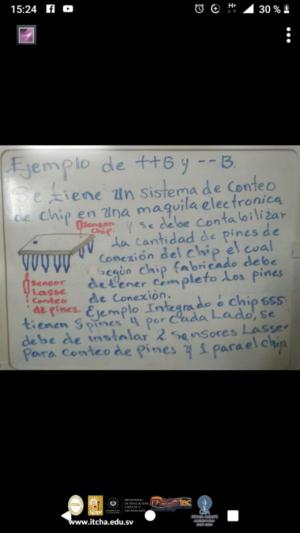 15:24
H+
30 %
Ejemplo de ++B y --B.
Se tiene un sistema de conteo
de chip en una maquila electronica
sensor
chip.
y se debe contabilizar
la cantidad de pines de
conexión del chip el cual
según chip fabricado debe
de tener completo los pines
de conexión.
sensor
Lasse
conteo
de pines
Ejemplo Integrado ó chip 555
tienen 8 pines 4 por cada Lado, se
debe de instalar 2 sensores Lasser
para conteo de pines y 1 para el chip
www.itcha.edu.sv